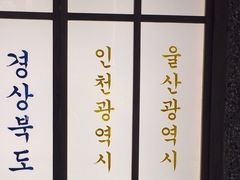 경상북도
인천광역시
울산광역시